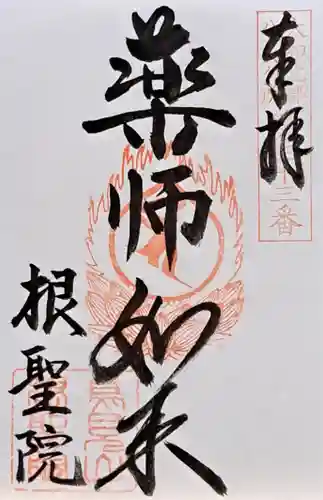 奉拝
三番
薬師如来
根聖院